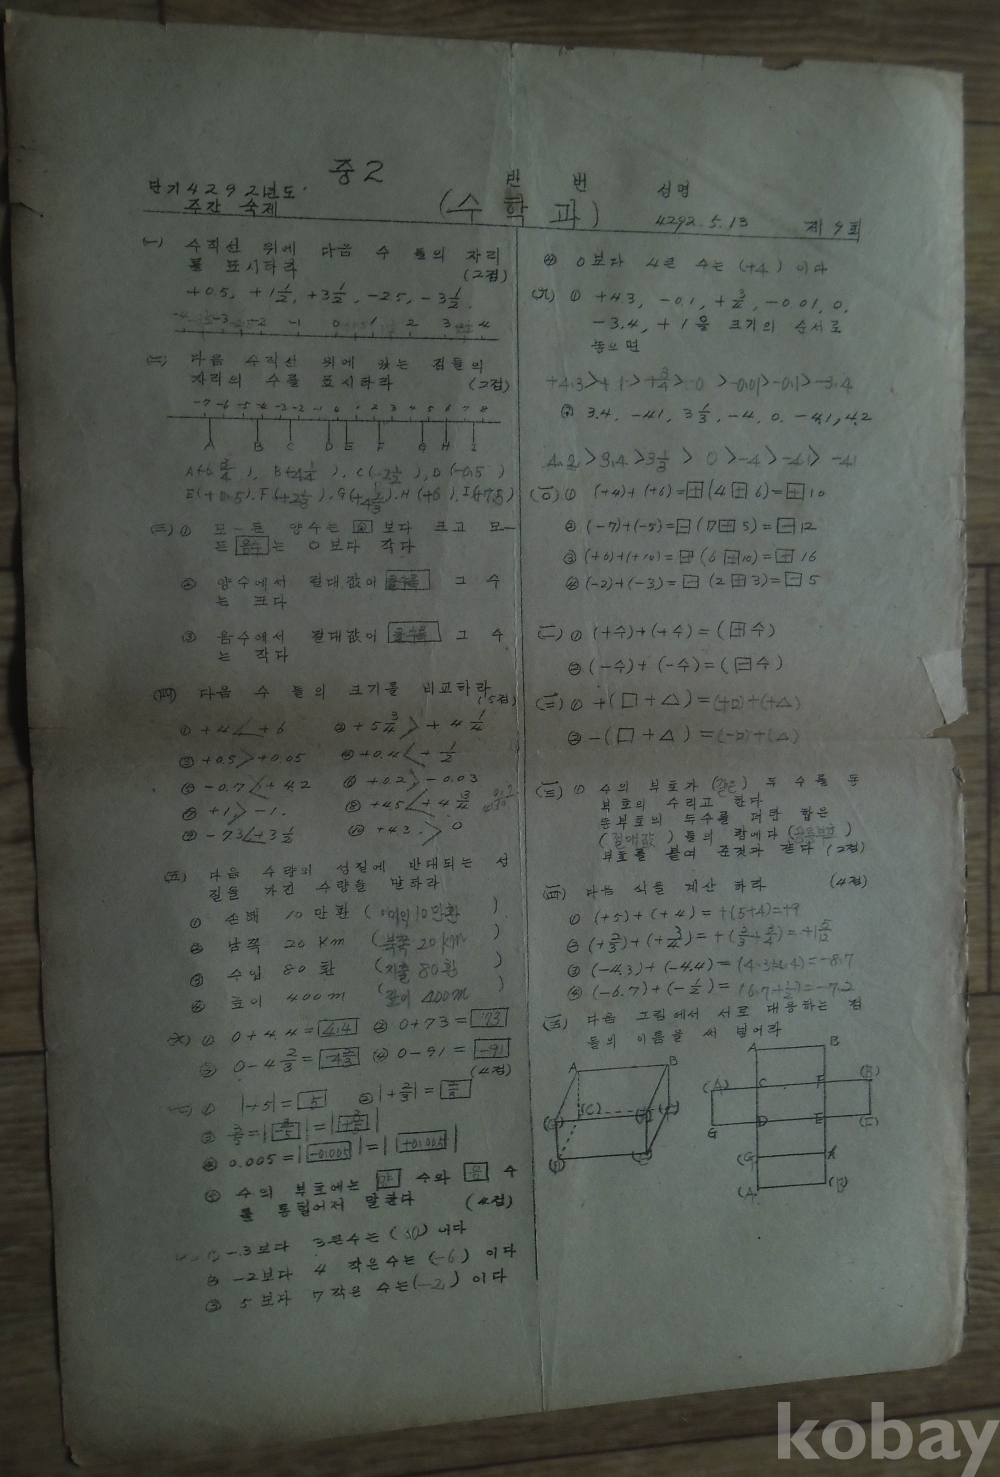 중2
단기 4292년도
주간 숙제
반 번 성명
(수학과)
4292. 5. 13 제9회
(一) 수직선 위에 다음 수 들의 자리
를 표시하라 (2점)
+0.5, +1½, +3½, -2.5, -3½.
-4 -3 -2 -1 0 1 2 3 4
(二) 다음 수직선 위에 있는 점들의
자리의 수를 표시하라 (2점)
-7 -6 -5 -4 -3 -2 -1 0 1 2 3 4 5 6 7 8
A B C D E F G H I
(三) ① 모-든 양수는 보다 크고 모-
든 음수 는 0보다 작다
② 양수에서 절대값이 클수록 그 수
는 크다
③ 음수에서 절대값이 클수록 그 수
는 작다
(四) 다음 수 들의 크기를 비교하라
(5점)
① +4 < +6 ② +5¾ > +4¼
③ +0.5 > +0.05 ④ +0.4 < +½
⑤ -0.7 < +4.2 ⑥ +0.2 > -0.03
⑦ +1 > -1. ⑧ +4.5 < +4¾
⑨ -7.3 < +3½ ⑩ +43. > 0
(五) 다음 수량의 성질에 반대되는 성
질을 가진 수량을 말하라
① 손해 10만환 ( 이익10만환 )
② 남쪽 20 Km ( 북쪽 20km )
③ 수입 80환 ( 지출 80환 )
④ 높이 400m ( 깊이 400m )
(六) ① 0+4.4= 4.4 ② 0+73= 73
③ 0-4⅔= -4⅔ ④ 0-91= -91
(4점)
① |+5|= 5 ② |+⅔|= ⅔
④ 0.005=| -0.005 |=| +0.005 |
⑤ 수의 부호에는 양 수와 음 수
를 통틀어서 말한다 (4점)
-3보다 3큰수는 ( ) 이다
② -2보다 4 작은수는 (-6) 이다
③ 5보다 7작은 수는 (-2) 이다
④ 0보다 4큰 수는 (+4) 이다
(九) ① +4.3, -0.1, +¾, -0.01, 0,
-3.4, +1을 크기의 순서로
놓으면
+4.3>+1>+¾>0>-0.01>-0.1>-3.4
② 3.4, -41, 3⅓, -4, 0, -4.1, 4.2
4.2>3.4>3⅓>0>-4>-4.1>-41
(一〇) ① (+4)+(+6)=+(4+6)=+10
② (-7)+(-5)=-(7+5)=-12
③ (+6)+(+10)=+(6+10)=+16
④ (-2)+(-3)=-(2+3)=-5
① (+수)+(+수)=(+수)
② (-수)+(-수)=(-수)
① +(□+△)=(+□)+(+△)
② -(□+△)=(-□)+(△)
① 수의 부호가 (같은) 두 수를 동
부호의 수라고 한다
동부호의 두수를 더한 합은
(절대값) 들의 합에다 (공통부호)
부호를 붙여 준것과 같다 (2점)
다음 식을 계산 하라 (4점)
① (+5)+(+4)=+(5+4)=+9
② (+⅔)+(+¾)=+(⅔+¾)=+1 5/12
③ (-4.3)+(-4.4)=(4.3+4.4)=-8.7
④ (-6.7)+(-½)=(6.7+½)=-7.2
다음 그림에서 서로 대응하는 점
들의 이름을 써 넣어라
A B
(C)
A B
(A) C F (B)
G D E
(G)
(A) (B)
kobay